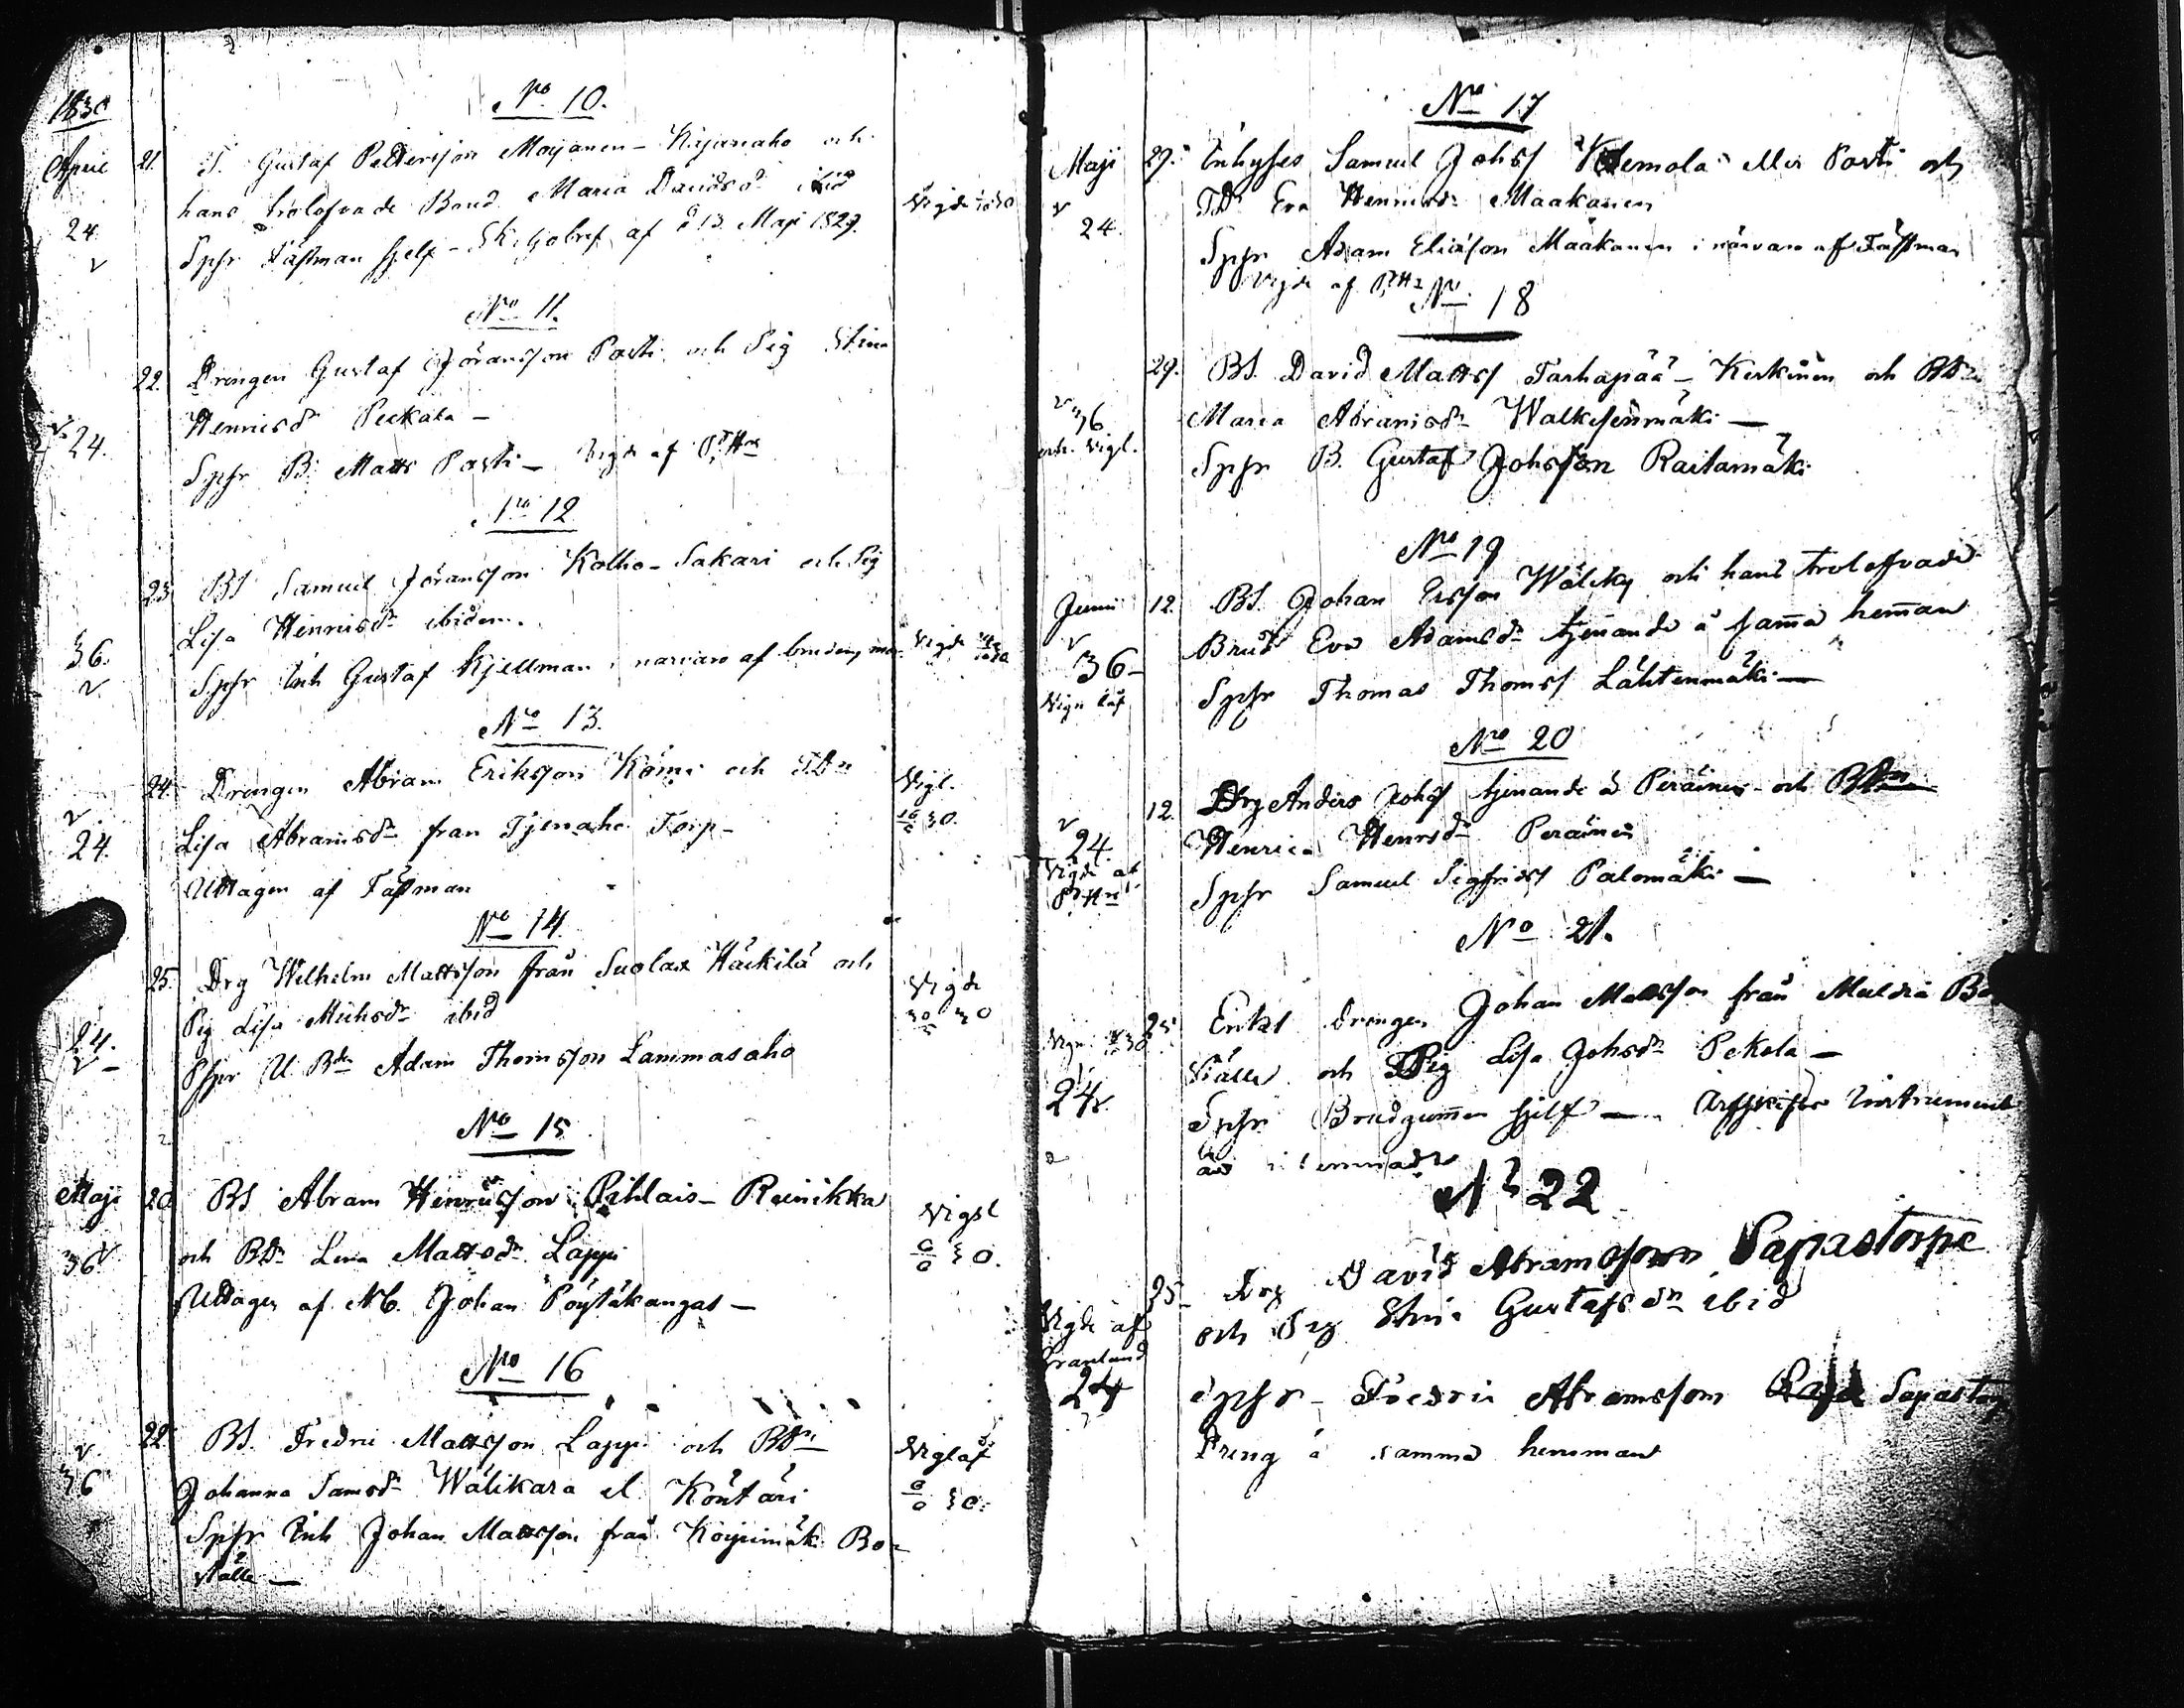 1830
No 10.
April 21. T. Gustaf Pettersson Moijanen - Kijanaho och
hans trolofvade Brud Maria Davidsdr ibid Vigde
24 Spfr Fästman sjelf - Skiljobref af d 13 Maji 1829.
No 11.
22. Drengen Gustaf Jöransson Posti och Pig Stina
Henricsdr Peckala -
24. Spfr B. Matts Posti - Vigde af
No 12
23. BS Samuel Jöransson Kolho - Sakari och Pig
Lisa Henricsdr ibidem.
36. Spfr Inh Gustaf Kjellman i närvaro af brudens mor Vigde
No 13.
24. Drengen Abram Eriksson Kömi och TDr Vigl.
24. Lisa Abramsdr från Tjenaho Torp - 30.
Uttagen af Fästman
No 14.
25. Drg Wilhelm Mattsson från Suolax Häckilä och Vigde
Pig Lisa Michsdr ibid 30
24. Spfr U. Bdn Adam Thomsson Lammasaho
No 15
Maji 20 BS Abram Henricsson Pihlais - Reinikka Vigsl
36 och BDr Lena Mattsdr Lappi 30.
Uttagen af Nb. Johan Pöytäkangas -
No 16
22 BS. Fredric Mattsson Lappi och BDr Viglaf
36 Johanna Samsdr Wälikara el. Köntäri 30.
Spfr Inh Johan Mattsson från Köyrimäki Bo-
ställe -
No 17
Maji 29. Inhyses Samuel Johss Kemola eller Posti och
TDr Eva Henricsdr Maakanen
24. Spfr Adam Eliasson Maakanen i närvaro af Fästman
Vigde af
No 18
29. BS. David Mattss Tarhapää - Kerkinen och BDr
36 Maria Abramsdr Walkesenmäki -
erh. Vigl. Spfr B. Gustaf Johsson Raitamäki
No 19
Junii 12. BS. Johan Ersson Wälsky och hans trolofvade
36 - Brud Eva Adamsdr tjenande å samma hemman
Vign Spfr Thomas Thomss Lähtenmäki -
No 20
12. Drg Anders Johss tjenande å Peräinen och BDr
24. Henrica Henrsdr Peräinen
Vigde af Spfr Samuel Sigfridss Palomäki -
No 21.
25 Enkl drengen Johan Mattsson från Muldia Bo
24 ställe och Pig Lisa Johsdr Pekola -
Spfr Brudgummen sjelf - Arfskifes Instrument
är inlemnadt
No 22
25 - Drg David Abramsson Papastorpe
Vigde af och Pig Stina Gustafsdr ibid
Granlund
24 Spfr - Fredric Abramsson Papastorp
Dreng å samma hemman